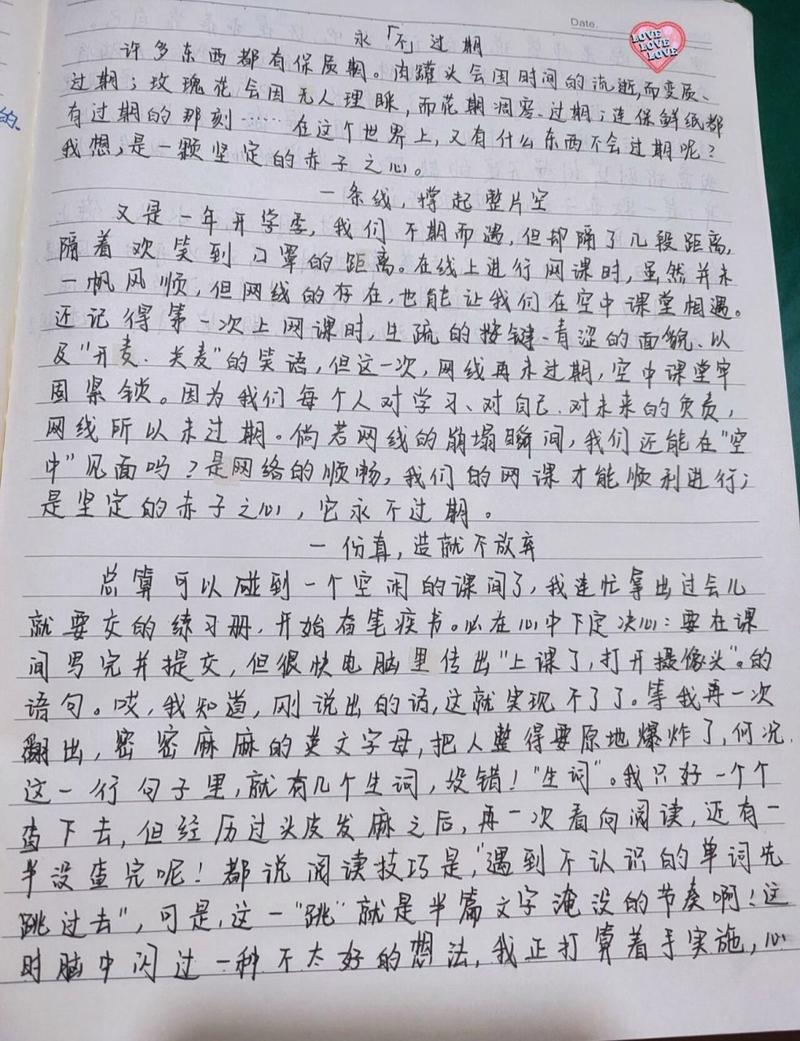 Date.
LOVE
LOVE
LOVE
永「不」过期
许多东西都有保质期。肉罐头会因时间的流逝,而变质、
过期;玫瑰花会因无人理睬,而花期凋零、过期;连保鲜纸都
有过期的那刻……在这个世界上,又有什么东西不会过期呢?
我想,是一颗坚定的赤子之心。
一条线,撑起整片空
又是一年开学季,我们不期而遇,但却隔了几段距离,
隔着欢笑到口罩的距离。在线上进行网课时,虽然并未
一帆风顺,但网线的存在,也能让我们在空中课堂相遇。
还记得第一次上网课时,生疏的按键、青涩的面貌、以
及"开麦、关麦"的笑语,但这一次,网线再未过期,空中课堂牢
固紧锁。因为我们每个人对学习、对自己、对未来的负责,
网线所以未过期。倘若网线的崩塌瞬间,我们还能在"空
中"见面吗?是网络的顺畅,我们的网课才能顺利进行;
是坚定的赤子之心,它永不过期。
一份真,造就不放弃
总算可以碰到一个空闲的课间了,我连忙拿出过会儿
就要交的练习册,开始奋笔疾书。必在心中下定决心:要在课
间写完并提交,但很快电脑里传出"上课了,打开摄像头"。的
语句。哎,我知道,刚说出的话,这就实现不了了。等我再一次
翻出,密密麻麻的英文字母,把人整得要原地爆炸了,何况
这一行句子里,就有几个生词,没错!"生词"。我只好一个个
查下去,但经历过头皮发麻之后,再一次看向阅读,还有一
半没查完呢!都说阅读技巧是,"遇到不认识的单词先
跳过去",可是,这一"跳"就是半篇文字淹没的节奏啊!这
时脑中闪过一种不太好的想法,我正打算着手实施,心
的